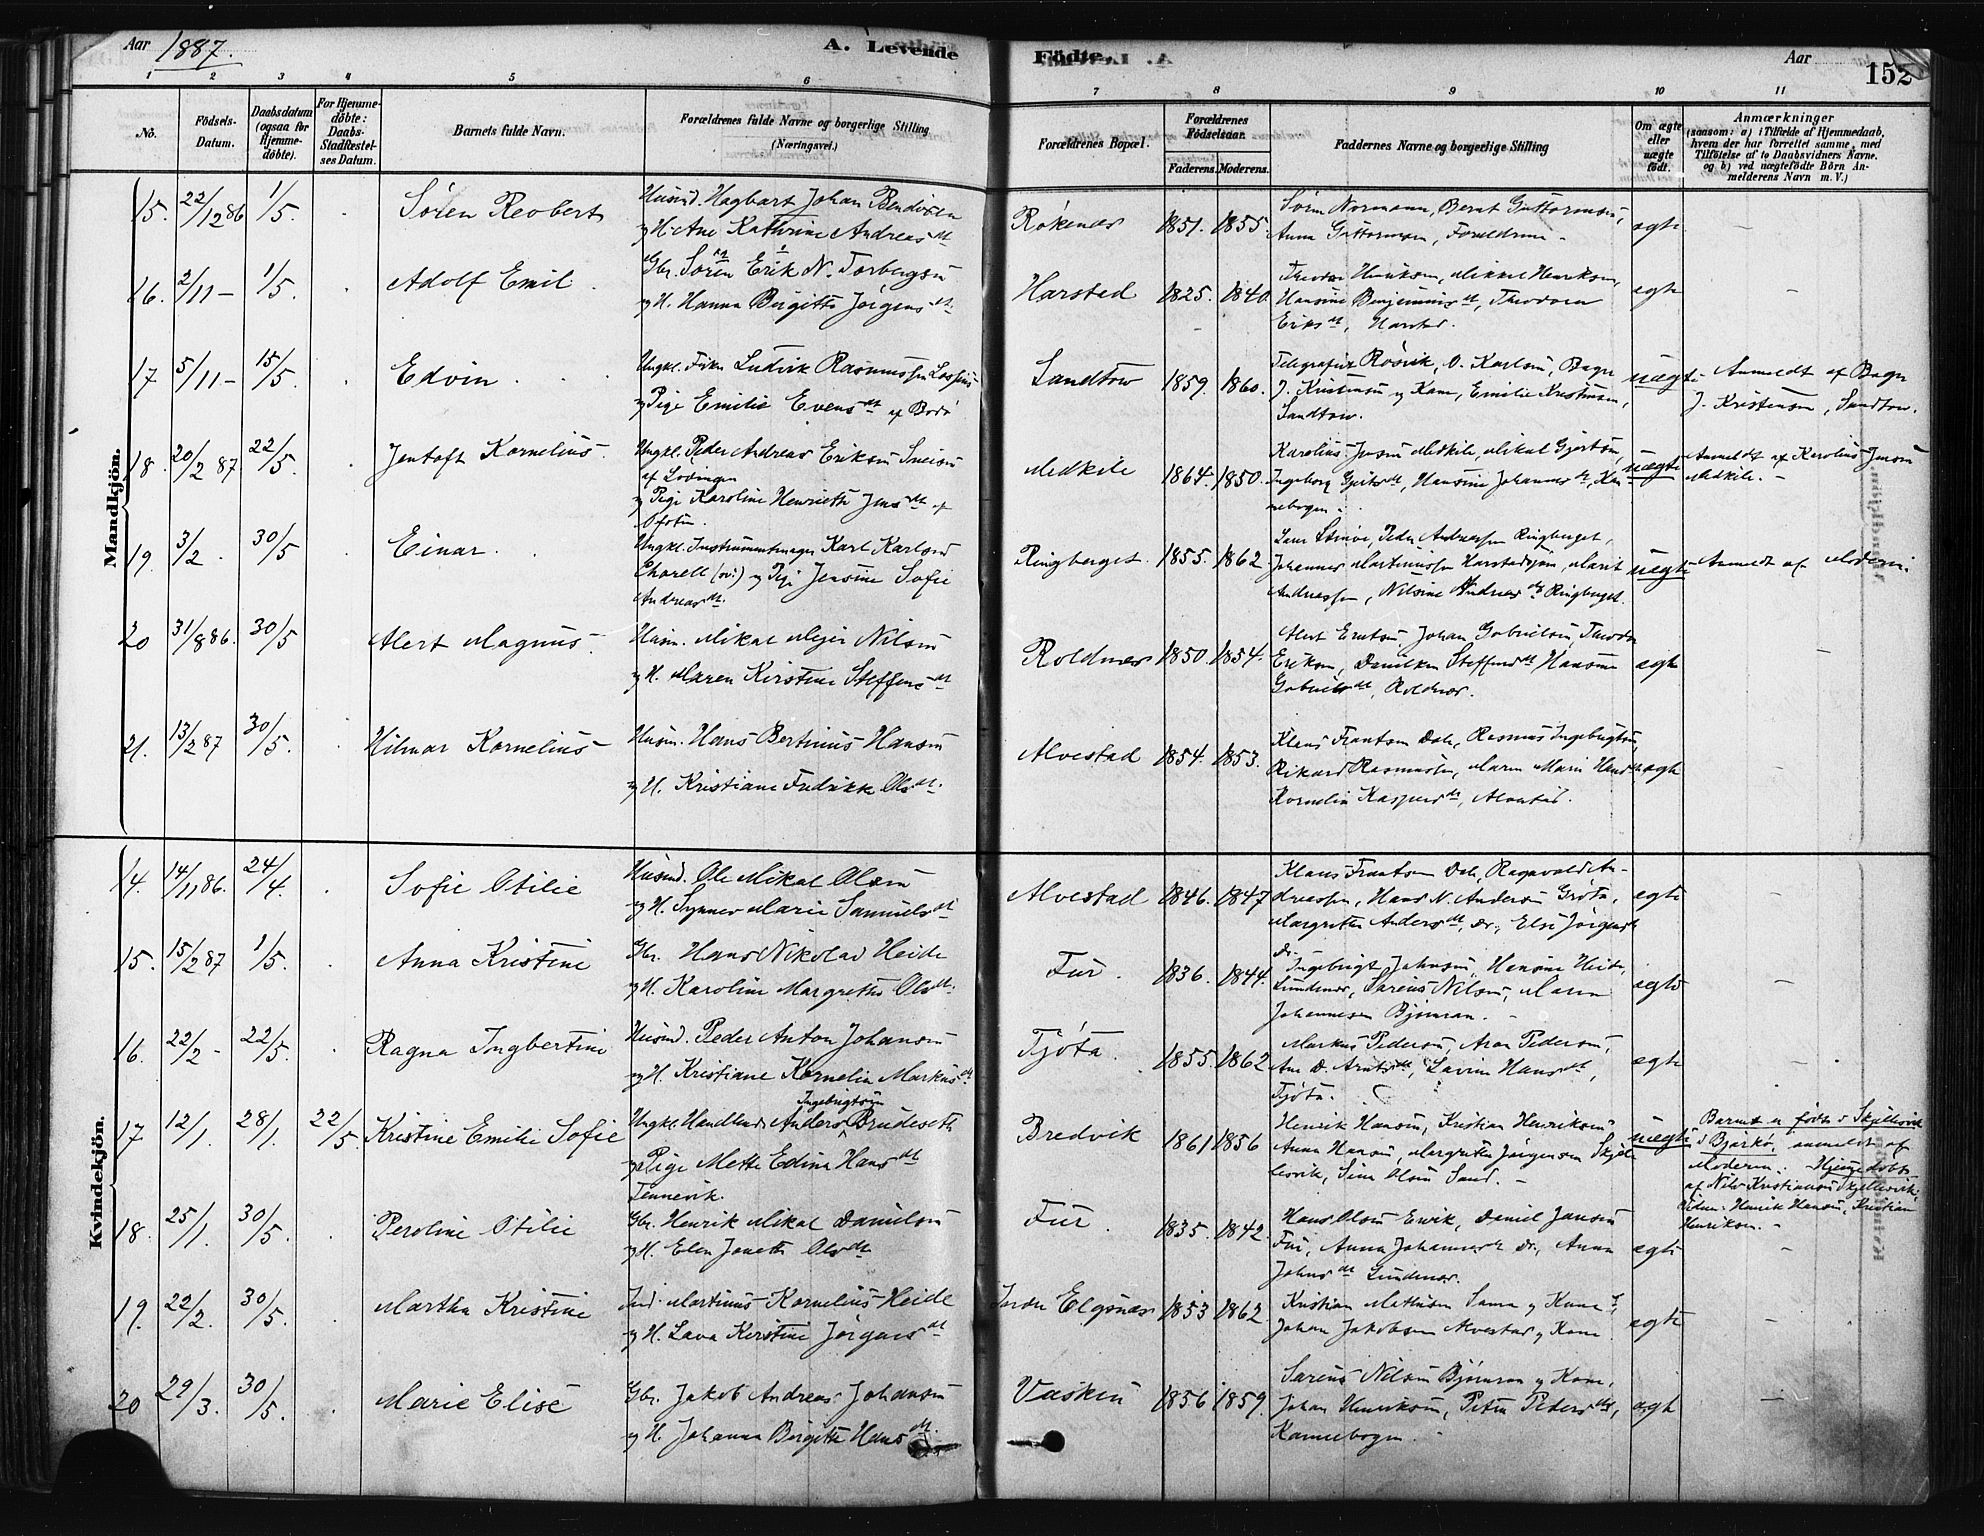 Aar 1887. A. Levende Fødte. Aar 152
1 2 3 4 5 6 7 8 9 10 11
No. Födsels-Datum. Daabsdatum (ogsaa for Hjemme-döbte). For Hjemme-döbte: Daabs-Stadfæstel-ses Datum. Barnets fulde Navn. Forældrenes fulde Navne og borgerlige Stilling (Næringsvei.) Forældrenes Bopæl. Forældrenes Födselsaar. Faderens. Moderens. Faddernes Navne og borgerlige Stilling Om ægte eller uægte födt. Anmærkninger (saasom: a) i Tilfælde af Hjemmedaab, hvem der har forrettet samme, med Tilföielse af to Daabsvidners Navne. og b) ved uægtefödte Börn An-melderens Navn m. V.)
Mandkjön.
15. 22/12 86 1/5. Søren Reobert Husmd. Hagbart Johan Bendixen
og H. Ane Kathrine Andreasdt
Røkenes 1851. 1855. Søren Normann, Bernt Guttormsen,
Anna Guttormsen, Forældrene - egte
16. 2/11 - 1/5. Adolf Emil Gbr. Søren Erik N. Torbergsen
og H. Hanna Birgitte Jørgensdt.
Harstad 1825. 1840. Theodor Henriksen, Mikkel Henriksen,
Hansine Benjaminsdt, Theodora
Eriksdt, Harstad. egte
17 5/11 - 15/5. Edvin Ungkl. Ludvik Rasmussen
og Pige Emilie Evensdt af Bodø
Sandtorv 1859. 1860. Telegrafist Røsvik, O. Karlsen, Bager
J. Kristensen og Kone, Emilie Kristensen,
Sandtorv. uægte Anmeldt af Bager
J. Kristensen, Sandtorv.
18. 20/2 87. 22/5. Jentoft Kornelius Ungkl. Peder Andreas Eriksen
af Lødingen
og Pige Karoline Henriette Jensdt af
Ofoten.
Medkile 1864. 1850. Karelius Jensen Medkile, Mikal Gjertsen,
Ingeborg Gjertsdt, Hansine Johannesdt, Kan-
nebogen. uægte Anmeldt af Karelius Jensen
Medkile. -
19. 3/2. 30/5 Einar Ungkl. Instrumentmager Karl Karlsen
(sv:) og Pige Jensine Sofie
Andreasdt.
Ringberget. 1855. 1862 Peder Andreassen Ringberget,
Johannes Martinussen Marit
Andreassen, Nilsine Andreasdt Ringberget. uægte Anmeldt af Moderen.
20 31/8 86. 30/5 Alert Magnus Husm. Mikal Mejer Nilsen
og H. Maren Kirstine Steffensdt
Roldnes 1850. 1854. Alert Johan Gabrielsen, Theodor
Eriksen, Steffensdt, Hansine
Gabrielsdt, Roldnes. egte
21. 13/2 87 30/5. Hilmar Kornelius Husm. Hans Bertinus Hansen
og H. Kristiane Fredrikke Olsdt.
Alvestad 1854. 1853. Klaus Frantsen Dale, Rasmus Ingebrigtsen,
Rikard Rasmussen, Maren Marie
Kornelia Kaspersdt, Alvestad. egte
Kvindekjön.
14. 14/11 86. 24/4. Sofie Otilie Husmd. Ole Mikal Olsen
og H. Synnev Marie Samuelsdt
Alvestad 1846. 1847 Klaus Frantsen Dale, Ragnvald An-
dreassen, Hans N. Andersen Grøta,
Margrethe Andersdt, do., Else Jørgensdt
do. egte
15. 15/2 87 1/5. Anna Kristine Gbr. Hans Nikolai Heide
og H. Karoline Margrethe Olsdt.
Fur. 1836. 1844. Ingebrigt Johnsen, Hansine Heide,
Lundenes, Sarius Nilsen, Maren
Johannesen Bjørnraa. - egte
16. 22/2 - 22/5. Ragna Ingbertine Husmd. Peder Anton Johansen
og H. Kristiane Kornelia Markusdt
Tjøta. 1855. 1862 Markus Pedersen, Aron Pedersen,
Ane D. Arntsdt, Lavine Hansdt,
Tjøta. egte
17 12/1. 28/1. 22/5. Kristine Emilie Sofie Ungkl. Handlende Anders Ingebrigtsen Brudeseth
og Pige Mette Edina Hansdt
Tennevik.
Bredvik 1861 1856 Henrik Hansen, Kristian Henriksen
Anna Hansen, Margrethe Jørgensen Skjel-
lesvik, Sina Olsen Sand. - uægte Barnet er født i Skjellesvik
i Bjarkø, anmeldt af
Moderen. Hjemmedøbt
af Nils Kristiansen Skjellesvik,
Vidner: Henrik Hansen, Kristian
Henriksen. -
18. 25/1. 30/5. Peroline Otilie Gbr. Henrik Mikal Danielsen
og H. Elen Janette Olsdt
Fur. 1835. 1842. Hans Olsen Ervik, Daniel Jansen
Fur, Anna Johannesdt do., Anna
Johnsdt Lundenes. egte
19. 22/2. 30/5. Martha Kristine Ind. Martinus Kornelius Heide
og H. Lava Kirstine Jørgensdt
Indre Elgsnes 1853 1862 Kristian Mathisen Sama og Kone,
Johan Jakobsen Alvestad og Kone egte
20 29/3. 30/5. Marie Elise Gbr. Jakob Andreas Johansen
og H. Johanna Birgitte Hansdt.
Vasken 1856 1859. Sarius Nilsen Bjørnraa og Kone,
Johan Henriksen, Petra Pedersdt,
Kannebogen. egte